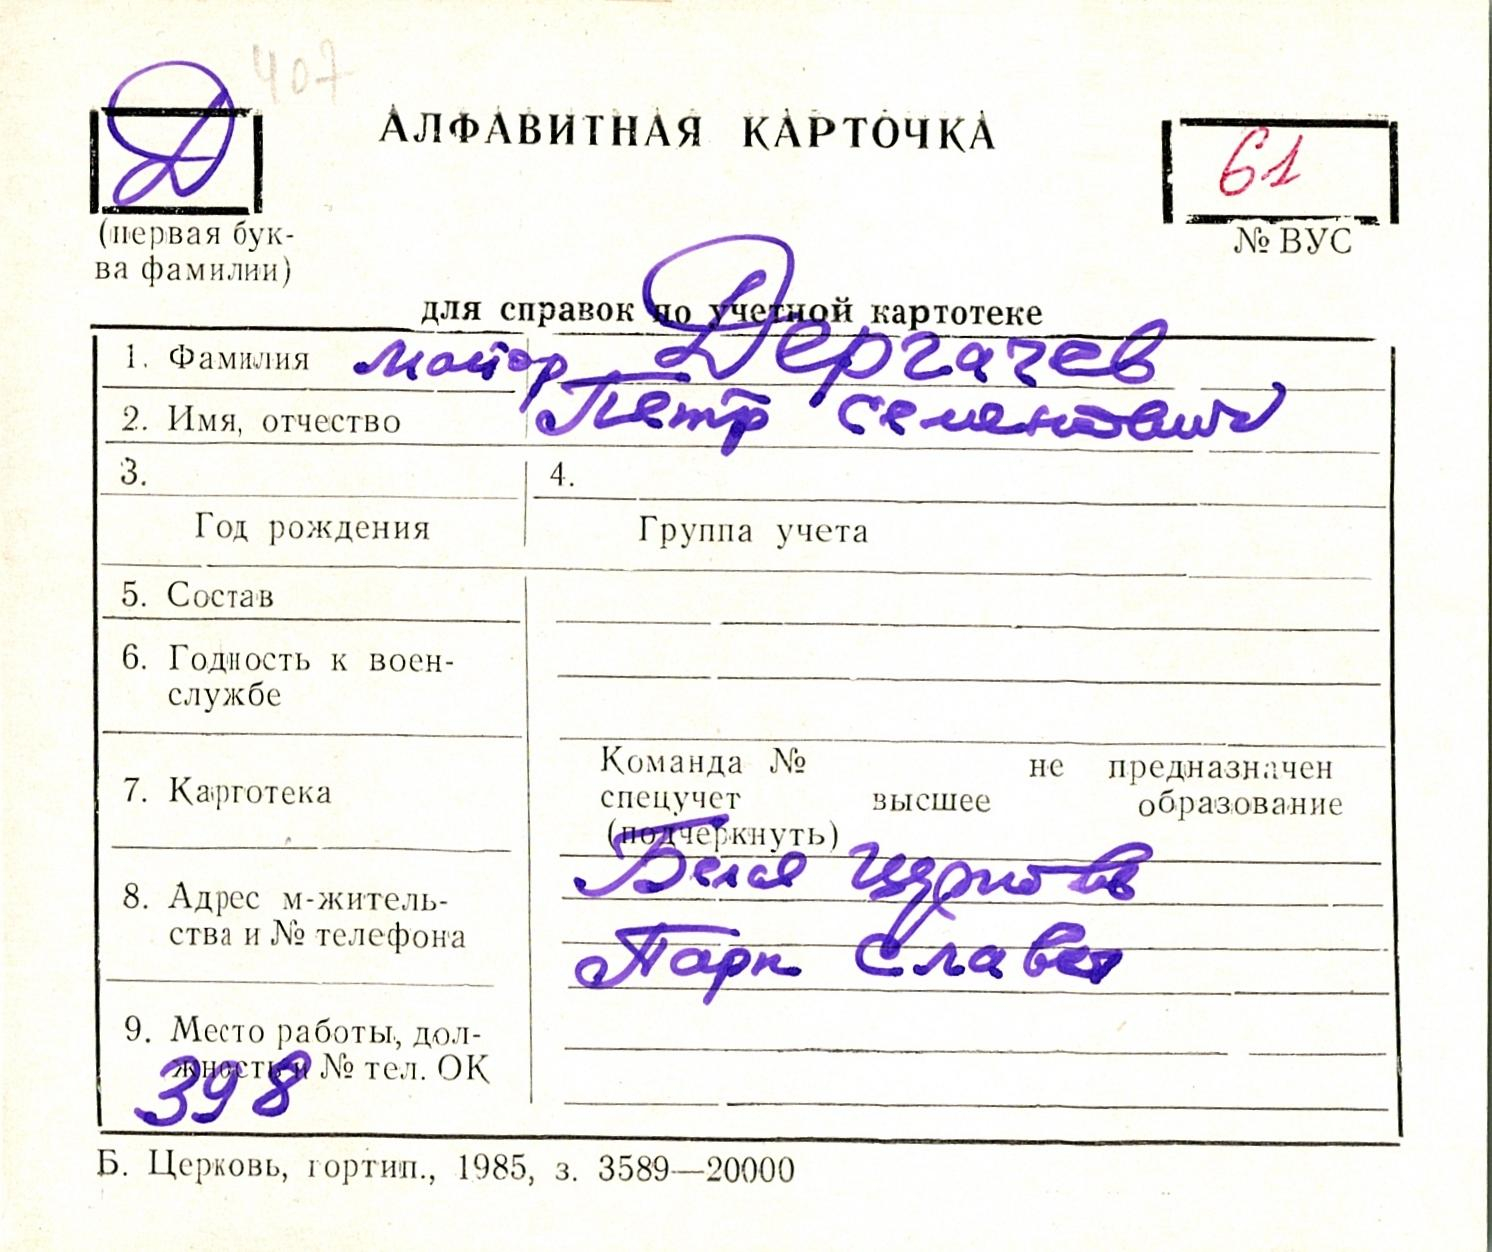 407
Д
АЛФАВИТНАЯ КАРТОЧКА
61
(первая бук-
ва фамилии)
№ ВУС
для справок по учетной картотеке
1. Фамилия майор Дергачев
2. Имя, отчество Петр Семенович
3.
4.
Год рождения
Группа учета
5. Состав
6. Годность к воен-
службе
7. Карготека
Команда № не предназначен
спецучет высшее образование
(подчеркнуть)
8. Адрес м-житель-
ства и № телефона
Белая Церковь
Парк Славы
9. Место работы, дол-
жность и № тел. ОК
398
Б. Церковь, гортип., 1985, з. 3589—20000